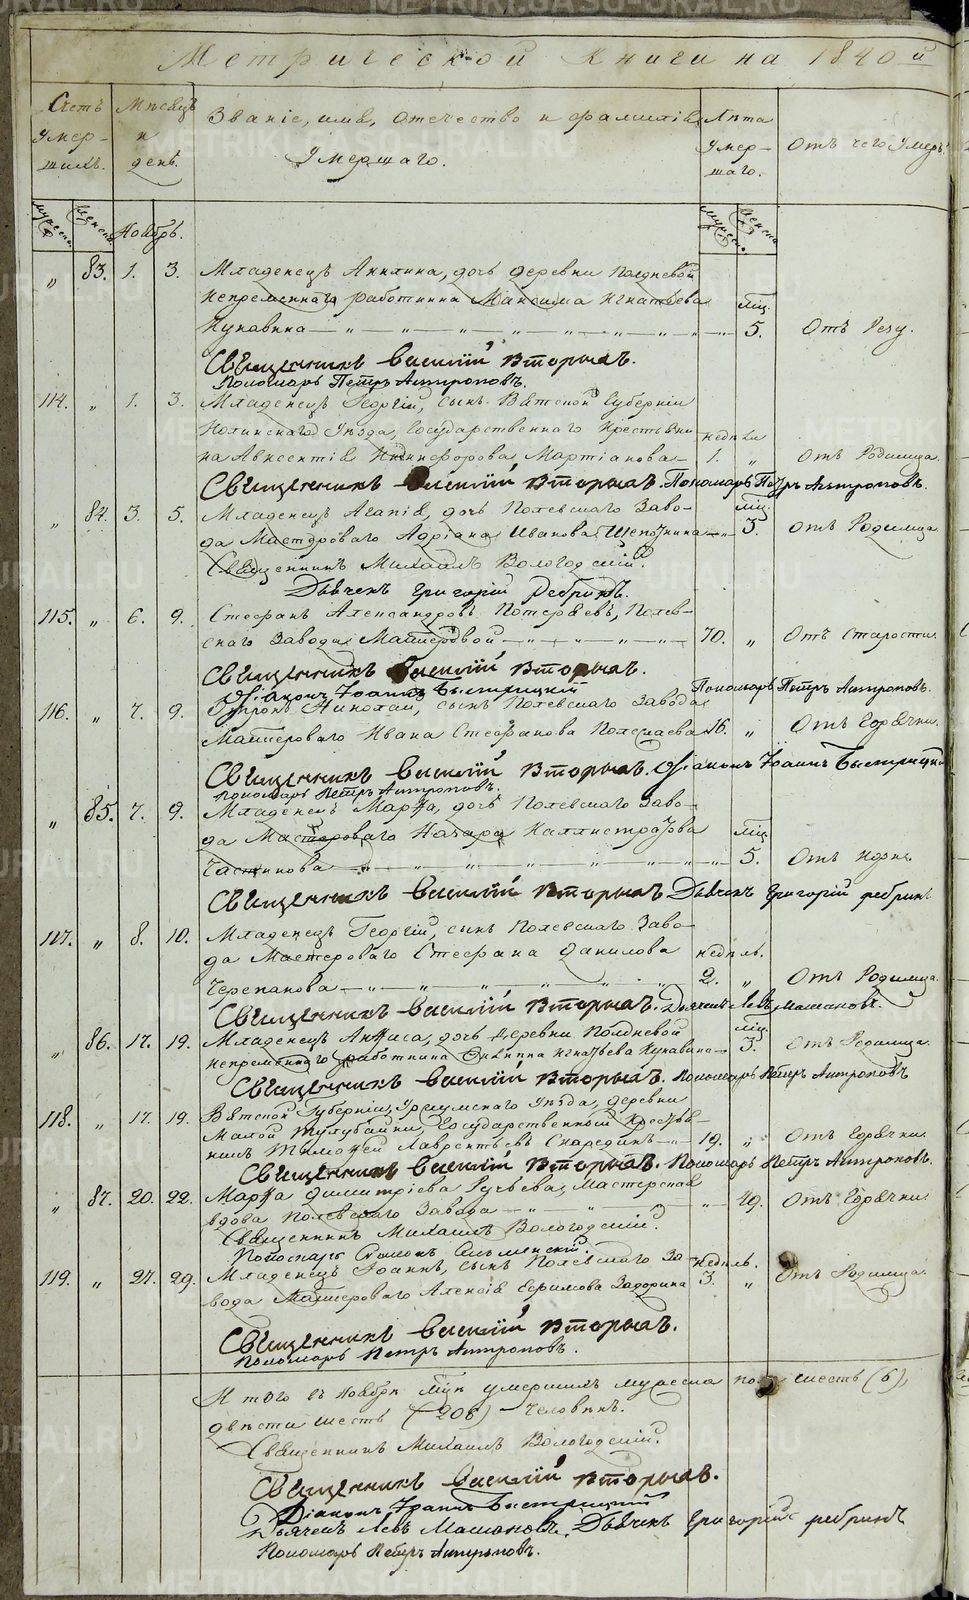 Метрической Книги на 1840й
Счетъ умер-шихъ.
Мѣсяцъ и день.
Званіе, имя, отечество и фамилія умершаго.
Лѣта умер-шаго.
Отъ чего умеръ.
мужеска женска Ноябрь. мужеска женска
„ 83. 1. 3. Младенецъ Акилина, дочь деревни Полдневой
непременнаго работника Максима Игнатьева
Мц.
Кунавина — „ — „ — „ — „ — „ — „ 5. Отъ Резу.
Священникъ Василій Вторыхъ.
Пономарь Петръ Антроповъ.
114. „ 1. 3. Младенецъ Георгій, сынъ Вятской Губерніи
Нолинскаго Уѣзда, Государственнаго крестьяни
недѣли
на Авксентія Никифорова Мартіанова — 1. „ Отъ Родимца.
Священникъ Василій Вторыхъ. Пономарь Петръ Антроповъ.
„ 84. 3. 5. Младенецъ Агапія, дочь Полевскаго Заво-
Мц.
да Мастероваго Адріана Иванова Щепочкина — „ 3. Отъ Родимца
Священникъ Михаилъ Вологодскій.
Дьячекъ Григорій Ребринъ.
115. „ 6. 9. Стефанъ Александровъ Потеряевъ, Полев-
скаго Завода Мастеровой — „ — „ — „ — „ — 70. „ Отъ Старости.
Священникъ Василій Вторыхъ.
Діаконъ Іоаннъ Быстрицкій Пономарь Петръ Антроповъ.
116. „ 7. 9. Отрокъ Николай, сынъ Полевскаго Завода
Мастероваго Ивана Стефанова 16. „ Отъ Горячки.
Священникъ Василій Вторыхъ. Діаконъ Іоаннъ Быстрицкій
Пономарь Петръ Антроповъ.
„ 85. 7. 9. Младенецъ Марѳа, дочь Полевскаго Заво-
да Мастероваго Назара Каллистратова
Мц.
Частикова — „ — „ — „ — „ — „ — „ 5. Отъ Корю.
Священникъ Василій Вторыхъ Дьячекъ Григорій Ребринъ
117. „ 8. 10. Младенецъ Георгій, сынъ Полевскаго Заво-
да Мастероваго Стефана Данилова недѣль.
Черепанова — „ — „ — „ — „ — „ 2. „ Отъ Родимца.
Священникъ Василій Вторыхъ. Дьячекъ Левъ Машановъ.
„ 86. 17. 19. Младенецъ Анѳиса, дочь Деревни Полдневой
Мц.
непременнаго работника Филиппа Игнатьева Кунавина — 3. Отъ Родимца.
Священникъ Василій Вторыхъ. Пономарь Петръ Антроповъ
118. „ 17. 19. Вятской Губерніи, Уржумскаго Уѣзда, деревни
Малой Тулубайки, Государственный Крестья-
нинъ Тимоѳей Лаврентьевъ — „ — 19. „ Отъ Горячки.
Священникъ Василій Вторыхъ. Пономарь Петръ Антроповъ.
„ 87. 20. 22. Марѳа Димитріева Ручьева, Мастерская
вдова Полевскаго Завода — „ — „ — „ 49. Отъ Горячки.
Священникъ Михаилъ Вологодскій.
Пономарь
119. „ 27. 29. Младенецъ Іоаннъ, сынъ Полевскаго За- недѣль.
вода Мастероваго Алексія Ефимова Задорина 3. „ Отъ Родимца.
Священникъ Василій Вторыхъ.
Пономарь Петръ Антроповъ.
И того въ Ноябрѣ Мцѣ умершихъ мужеска полу шесть (6),
двѣсти шесть (206) человѣкъ.
Священникъ Михаилъ Вологодскій.
Священникъ Василій Вторыхъ.
Діаконъ Іоаннъ Быстрицкій
Дьячекъ Левъ Машановъ. Дьячекъ Григорій Ребринъ
Пономарь Петръ Антроповъ.
METRIKI.GASU-URAL.RU